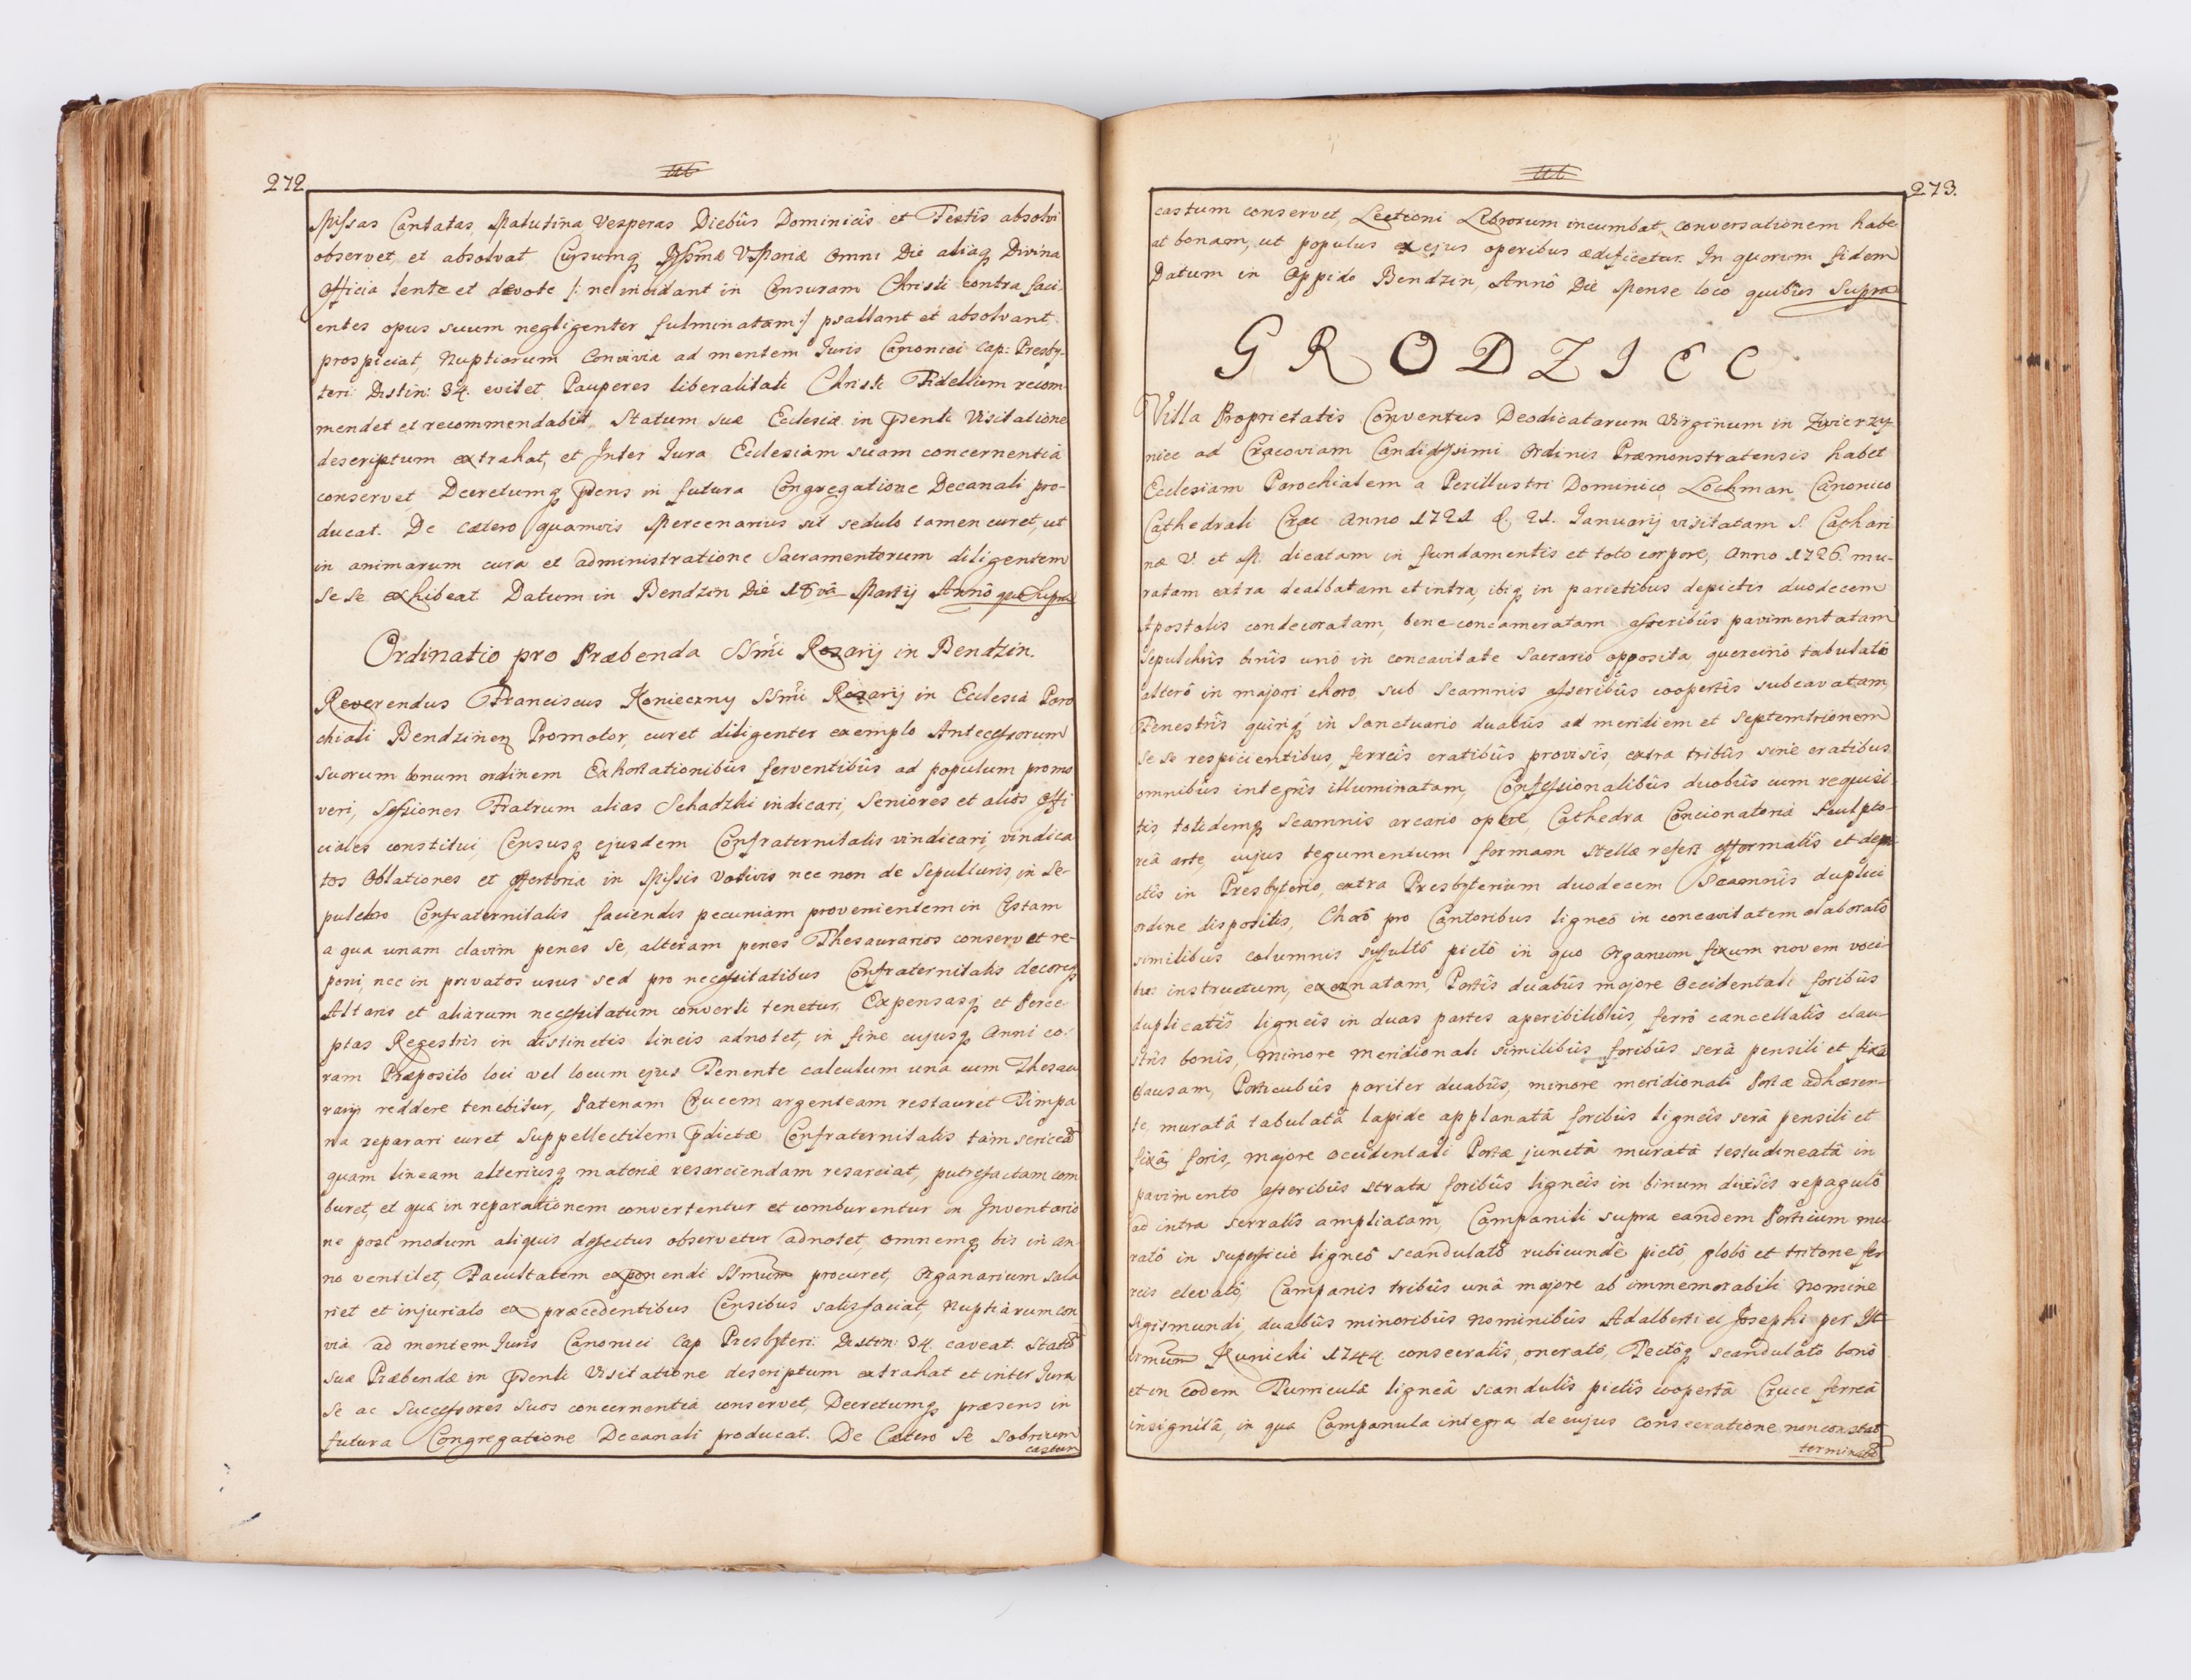 272
Missas Cantatas, Matutina Vesperas Diebûs Dominicis et Festîs absolvi
observet et absolvat Cursumq Bssmæ V Mariæ omni Die aliaq Divina
Officia lente et devote /: ne incidant in Censuram Christi contra faci-
entes opus suum negligenter fulminatam :/ psallant et absolvant
prospiciat, Nuptiarum Convivia ad mentem Juris Canonici Cap: Presby-
teri: Distin: 34. evitet. Pauperes liberalitati Christi Fidelium recom-
mendet et recommendabit, Statum suæ Ecclesiæ in pñti Visitatione
descriptum extrahat, et Inter Jura Ecclesiam suam concernentia
conservet Decretumq pñens in futura Congregatione Decanali pro-
ducat. De cætero quamvis Mercenarius sit sedulo tamen curet, ut
in animarum cura et administratione Sacramentorum diligentem
se se exhibeat. Datum in Bendzin Die 18vâ Martij Annô quo supra
Ordinatio pro Præbenda SSmi Rozarij in Bendzin.
Reverendus Franciscus Konieczny SSmi Rozarij in Ecclesia Paro
chiali Bendzinen Promotor, curet diligenter exemplo Antecessorum
suorum bonum ordinem Exhortationibûs ferventibûs ad populum promo
veri, Sessiones Fratrum alias Schadzki indicari, Seniores et aliôs Offi
ciales constitui, Censusq ejusdem Confraternitatis vindicari, vindica
tos Oblationes et offertoria in Missis Votivis nec non de Sepulturis, in Se-
pulchro Confraternitatis faciendis pecuniam provenientem in Cistam
a qua unam clavim penes se, alteram penes Thesaurarios conservet re-
poni, nec in privatos usus sed pro necessitatibus Confraternitatis decoreq
Altaris et aliarum necessitatum converti tenetur, Expensasq et Perce
ptas Regestris in distinctis lineis adnotet, in fine cujusq Anni co-
ram Præposito loci vel locum ejus Tenente calculum una cum Thesau
rarijs reddere tenebitur, Patenam Crucem argenteam restauret Timpa
na reparari curet Suppellectilem pdictæ Confraternitatis tam sericeâ
quam lineam alteriusq materiæ resarciendam resarciat, putrefactam com
buret, et quæ in reparationem convertentur et comburentur in Inventario
ne post modum aliquis defectus observetur adnotet, omnemq bis in an-
no ventilet, Facultatem exponendi SSmum procuret, Organarium sala
riet et injuriato ex præcedentibus Censibus satisfaciat, Nuptiarum con
via ad mentem Juris Canonici Cap Presbyteri: Distin: 34. caveat. Statû
suæ Præbendæ in pñti Visitatione descriptum extrahat et inter Jura
se ac Successores suos concernentia conservet, Decretumq præsens in
futura Congregatione Decanali producat. De Cætero se Sobrium
castum
273.
castum conservet, Lectioni Librorum incumbat, conversationem habe
at bonam, ut populus ex ejus operibus ædificetur. In quorum fidem
Datum in Oppido Bendzin, Annô Die Mense loco quibûs Supra
GRODZIEC
Villa Proprietatis Conventus Deodicatarum Virginum in Zwierzy-
niec ad Cracoviam Candidissimi Ordinis Præmonstratensis habet
Ecclesiam Parochialem a Perillustri Dominico Lochman Canonico
Cathedrali Crac Anno 1721 d. 21. Januarij visitatam S. Cathari
næ V. et M. dicatam in fundamentis et toto corpore, Anno 1726. mu-
ratam extra dealbatam et intra, ibiq in parietibus depictis duodecem
Apostolis condecoratam, bene concameratam asseribûs pavimentatam
Sepulchris binîs unô in concavitate Sacrario opposita quercino tabulatô
alterô in majori choro, sub Scamnis asseribûs coopertîs subcavatam,
Fenestrîs quinq in Sanctuario duabûs ad meridiem et Septemtrionem
se se respicientibus, ferreîs cratibûs provisîs, extra tribûs sine cratibus
omnibûs integrîs illuminatam, Confessionalibûs duobûs cum requisi-
tis, totidemq Scamnis arcario opere, Cathedra Concionatoria Sculpto-
reâ arte, cujus tegumentum formam Stellæ refert efformatîs et depi-
ctîs in Presbyterio, extra Presbyterium duodecem Scamnîs duplici
ordine dispositîs, Chorô pro Cantoribus ligneô in concavitatem elaboratô
similibus columnis suffultô pictô in quo Organum fixum novem voci-
bus instructum, exornatam, Portîs duabûs majore occidentali foribûs
duplicatîs ligneîs in duas partes aperibilibûs, ferrô cancellatîs clau-
strîs bonîs, minore meridionali similibûs foribûs serâ pensili et fixâ
clausam, Porticubûs pariter duabûs, minore meridionali Portæ adhæren-
te, muratâ tabulatâ lapide applanatâ foribûs ligneîs serâ pensili et
fixâ foris, majore occidentali Portæ junctâ muratâ testudineatâ in
pavimento asseribûs strata foribûs ligneîs in binum divisîs repagulô
ad intra serratîs ampliatam, Campanili supra eandem Porticum mu-
ratô in superficie ligneô scandulatô rubicundè pictô, globô et tritone fer
reis elevatô, Campanis tribûs unâ majore ab immemorabili Nomine
Sigismundi, duabûs minoribûs nominibûs Adalberti et Josephi per Illt
trmum Kunicki 1744 consecratîs, oneratô, Tectôq scandulatô bonô
et in eodem Turriculâ ligneâ scandulîs pictîs coopertâ Cruce ferreâ
insignitâ, in qua Campanula integra de cujus consecratione non constat
terminatô